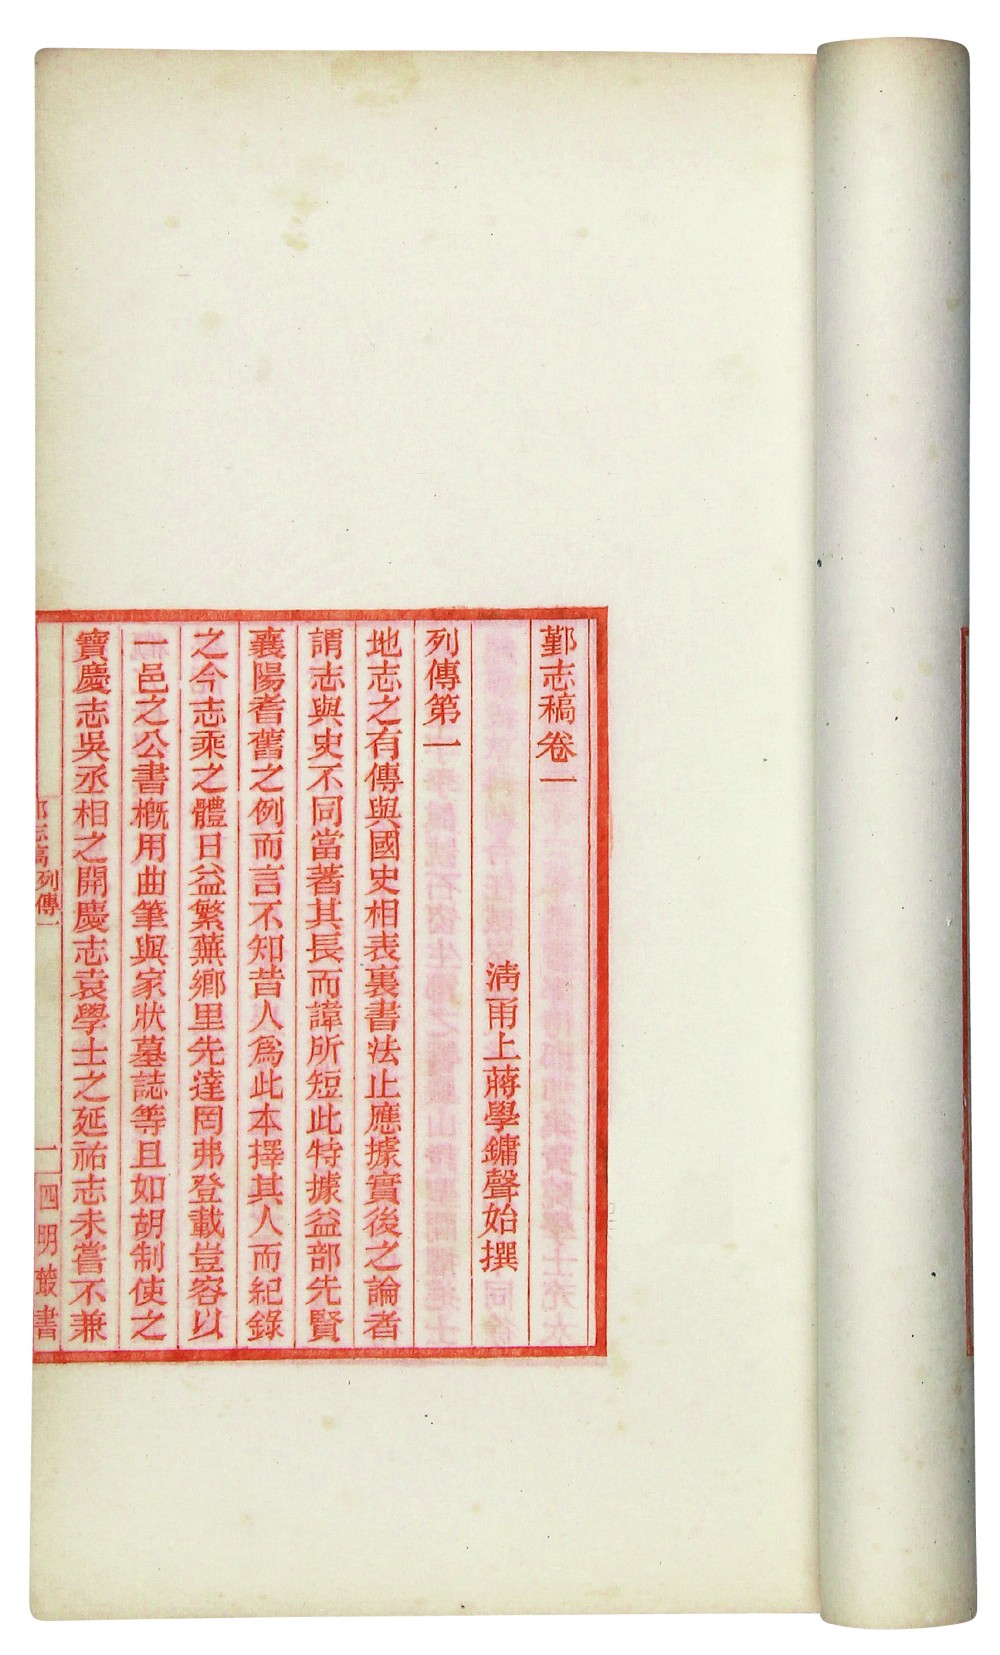 鄞志稿卷一
清甬上蔣學鏞聲始撰
列傳第一
地志之有傳與國史相表裏書法止應據實後之論者
謂志與史不同當著其長而諱所短此特據益部先賢
襄陽耆舊之例而言不知昔人爲此本擇其人而紀錄
之今志乘之體日益繁蕪鄉里先達罔弗登載豈容以
一邑之公書槪用曲筆與家狀墓誌等且如胡制使之
寶慶志吳丞相之開慶志袁學士之延祐志未嘗不兼
志稿 列傳一
一
四明叢書